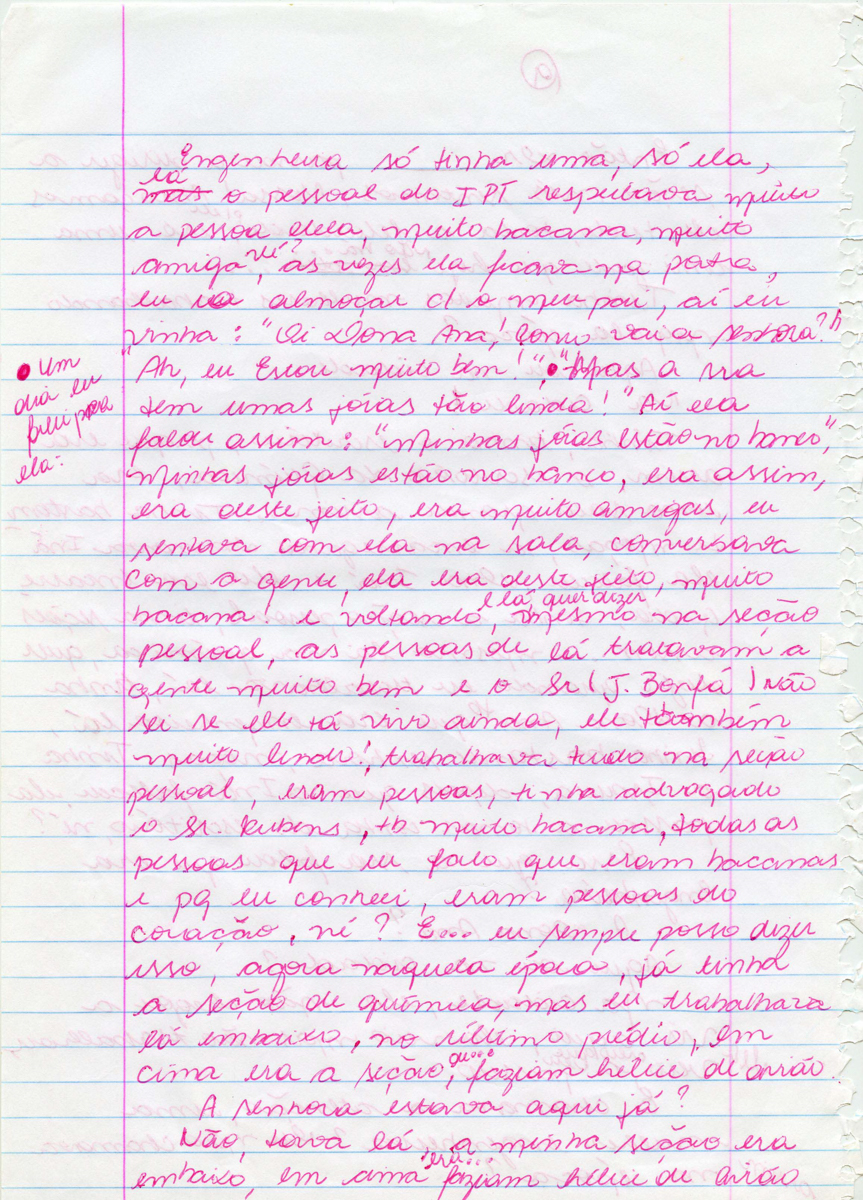 Engenheira só tinha uma, só ela,
lá
mas o pessoal do IPT respeitava muito
a pessoa dela, muito bacana, muito
amiga né?, às vezes ela ficava na porta,
eu ia almoçar c/ o meu pai, aí eu
vinha: "Oi Dona Ana! Como vai a senhora?"
"Ah, eu Estou muito bem!", "Mas a sra
• Um
dia eu
falei para
ela:
tem umas jóias tão linda!" Aí ela
falou assim: "minhas jóias estão no banco",
minhas jóias estão no banco, era assim,
era deste jeito, era muito amigas, eu
sentava com ela na sala, conversava
com a gente, ela era deste jeito, muito
e lá, quer dizer
bacana! e voltando, mesmo na seção
pessoal, as pessoas de lá tratavam a
gente muito bem e o Sr (J. Bonfá) Não
sei se ele tá vivo ainda, ele também
muito lindo!, trabalhava tudo na seção
pessoal, eram pessoas, tinha advogado
o Sr. Rubens, tb muito bacana, todas as
pessoas que eu falo que eram bacanas
é pq eu conheci, eram pessoas do
coração, né? E... eu sempre posso dizer
isso, agora naquela época, já tinha
a seção de química, mas eu trabalhava
lá embaixo, no último prédio, em
cima era a seção, que... faziam hélice de avião.
A senhora estava aqui já?
Não, tava lá, a minha seção era
embaixo, em cima era... faziam hélice de avião